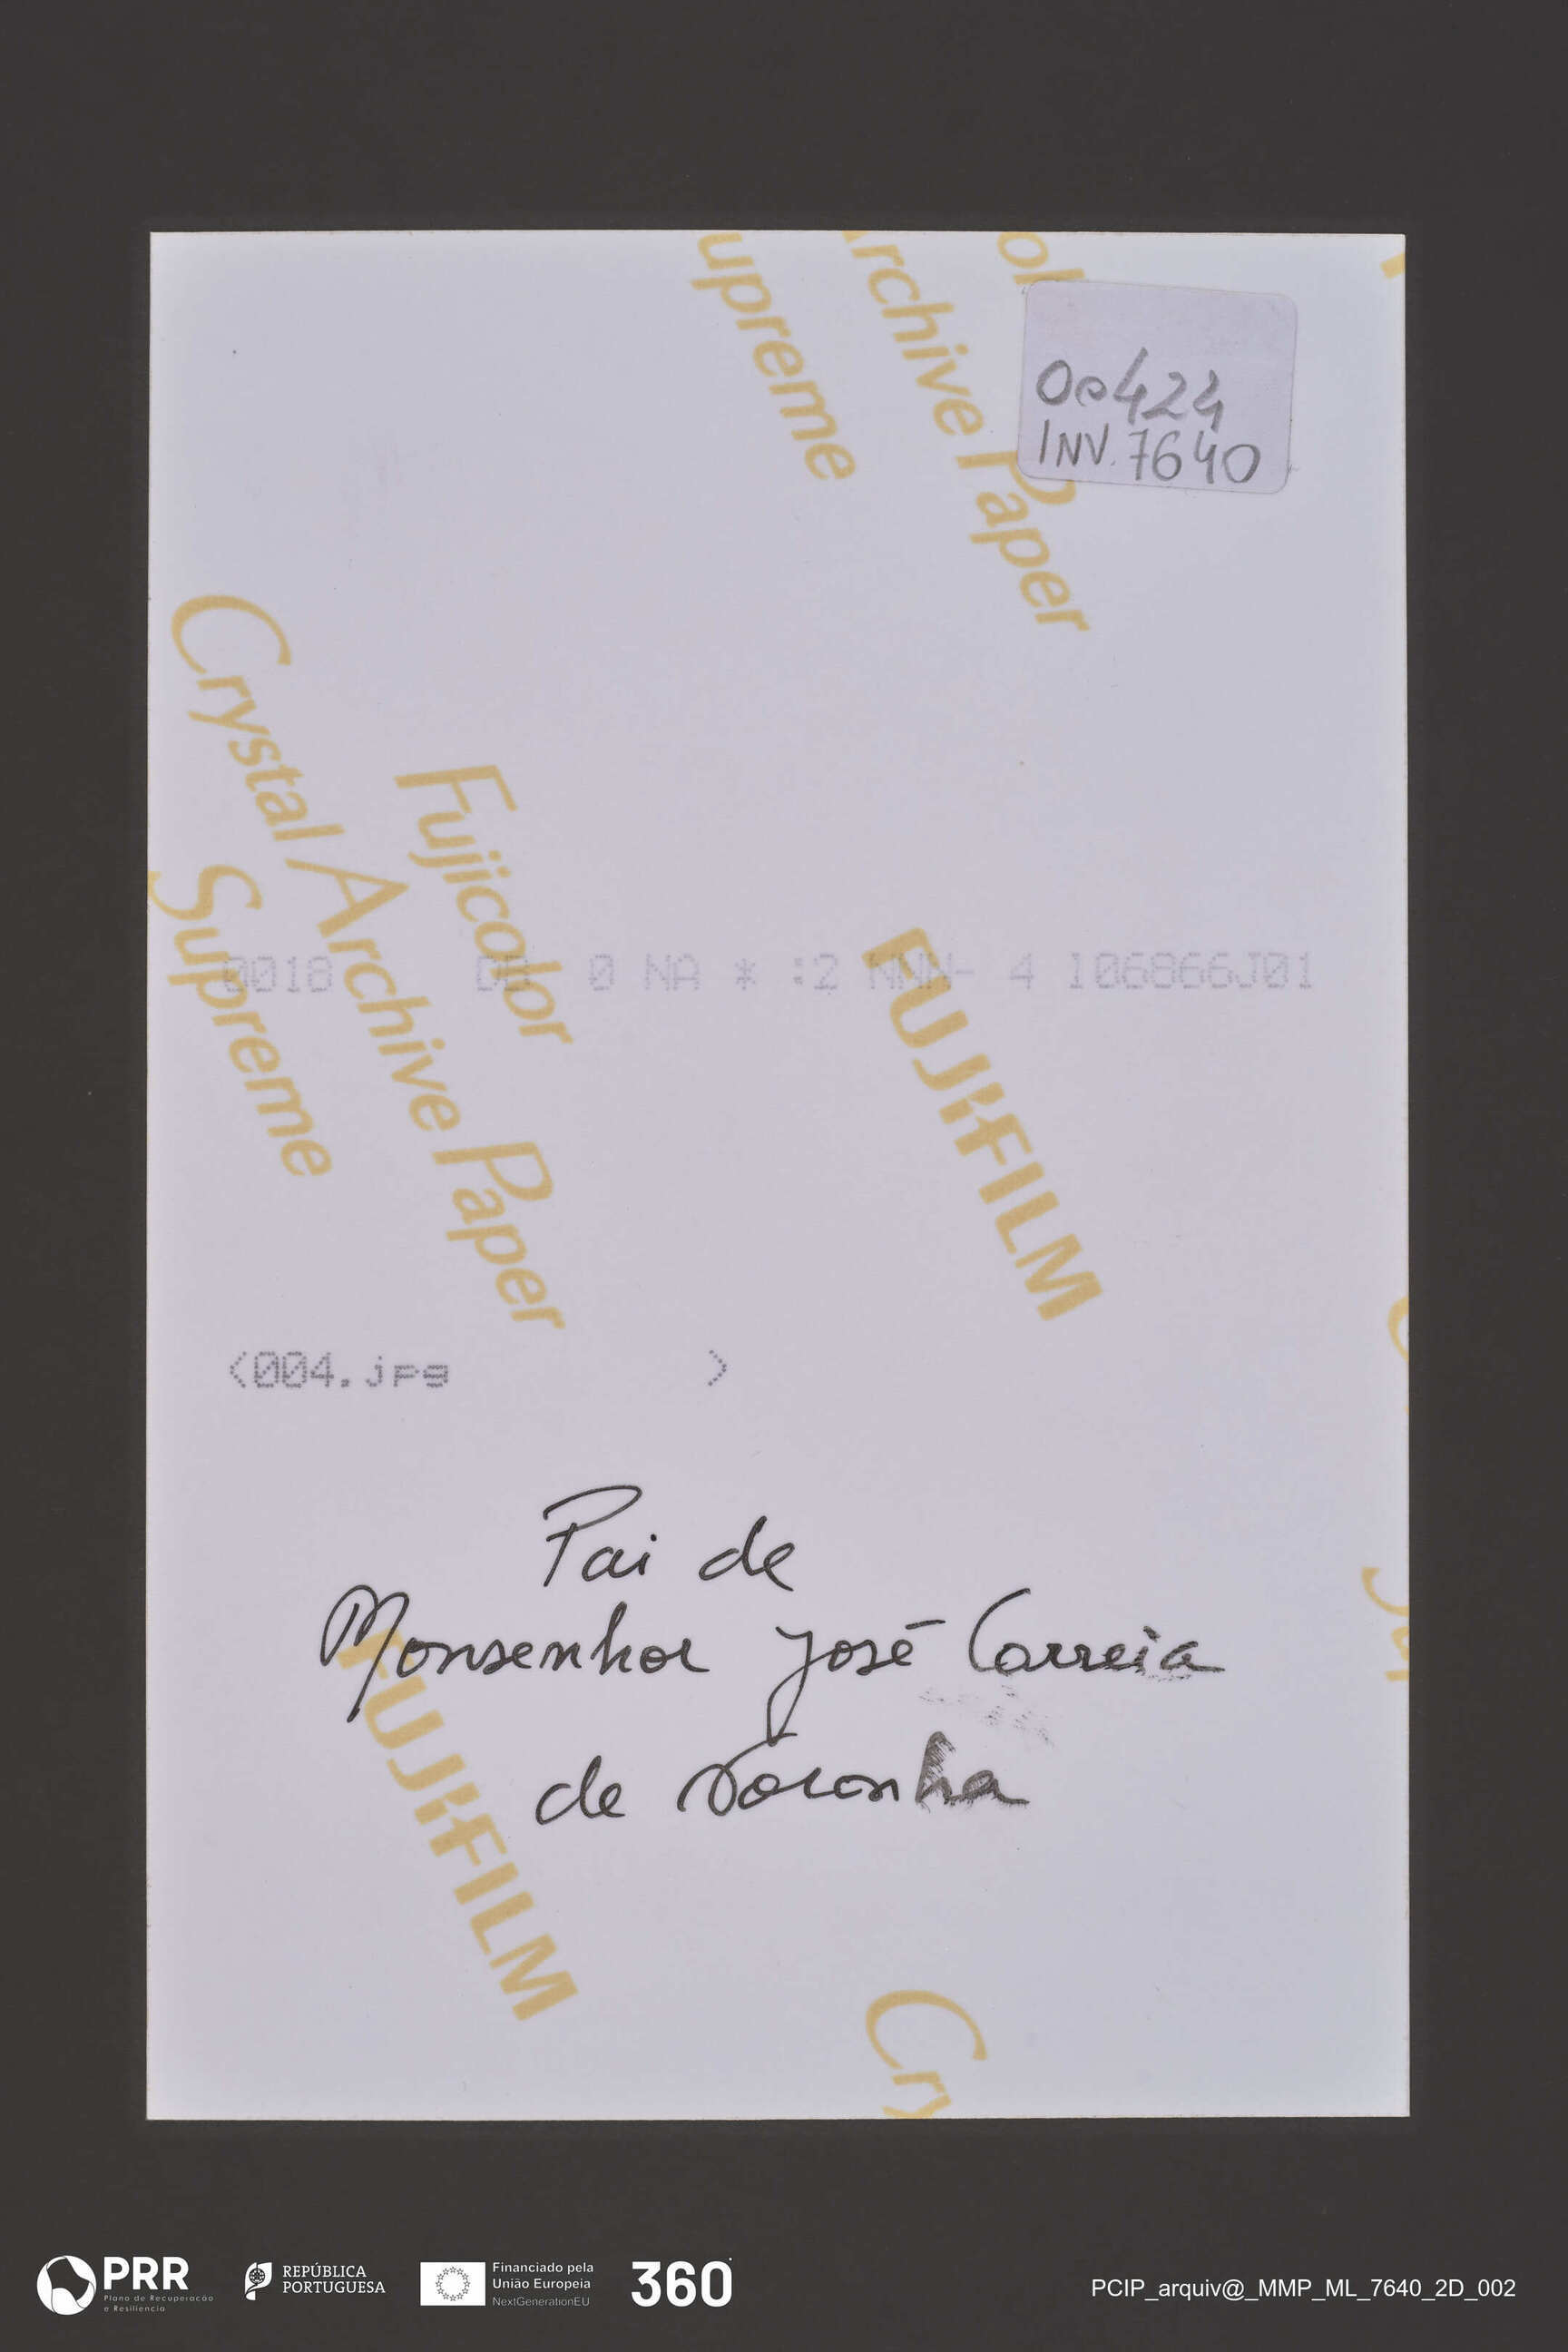 upreme
rchive Paper
INV. 7640
Crystal Archive Paper
Fujicolor
Supreme
0018 0 NA * :2 NNN- 4 106866J01
FUJIFILM
<004.jpg >
Pai de
Monsenhor José Correia
de Noronha
FUJIFILM
Cry
PRR
Plano de Recuperação
e Resiliência
REPÚBLICA
PORTUGUESA
Financiado pela
União Europeia
NextGenerationEU
360
PCIP_arquiv@_MMP_ML_7640_2D_002